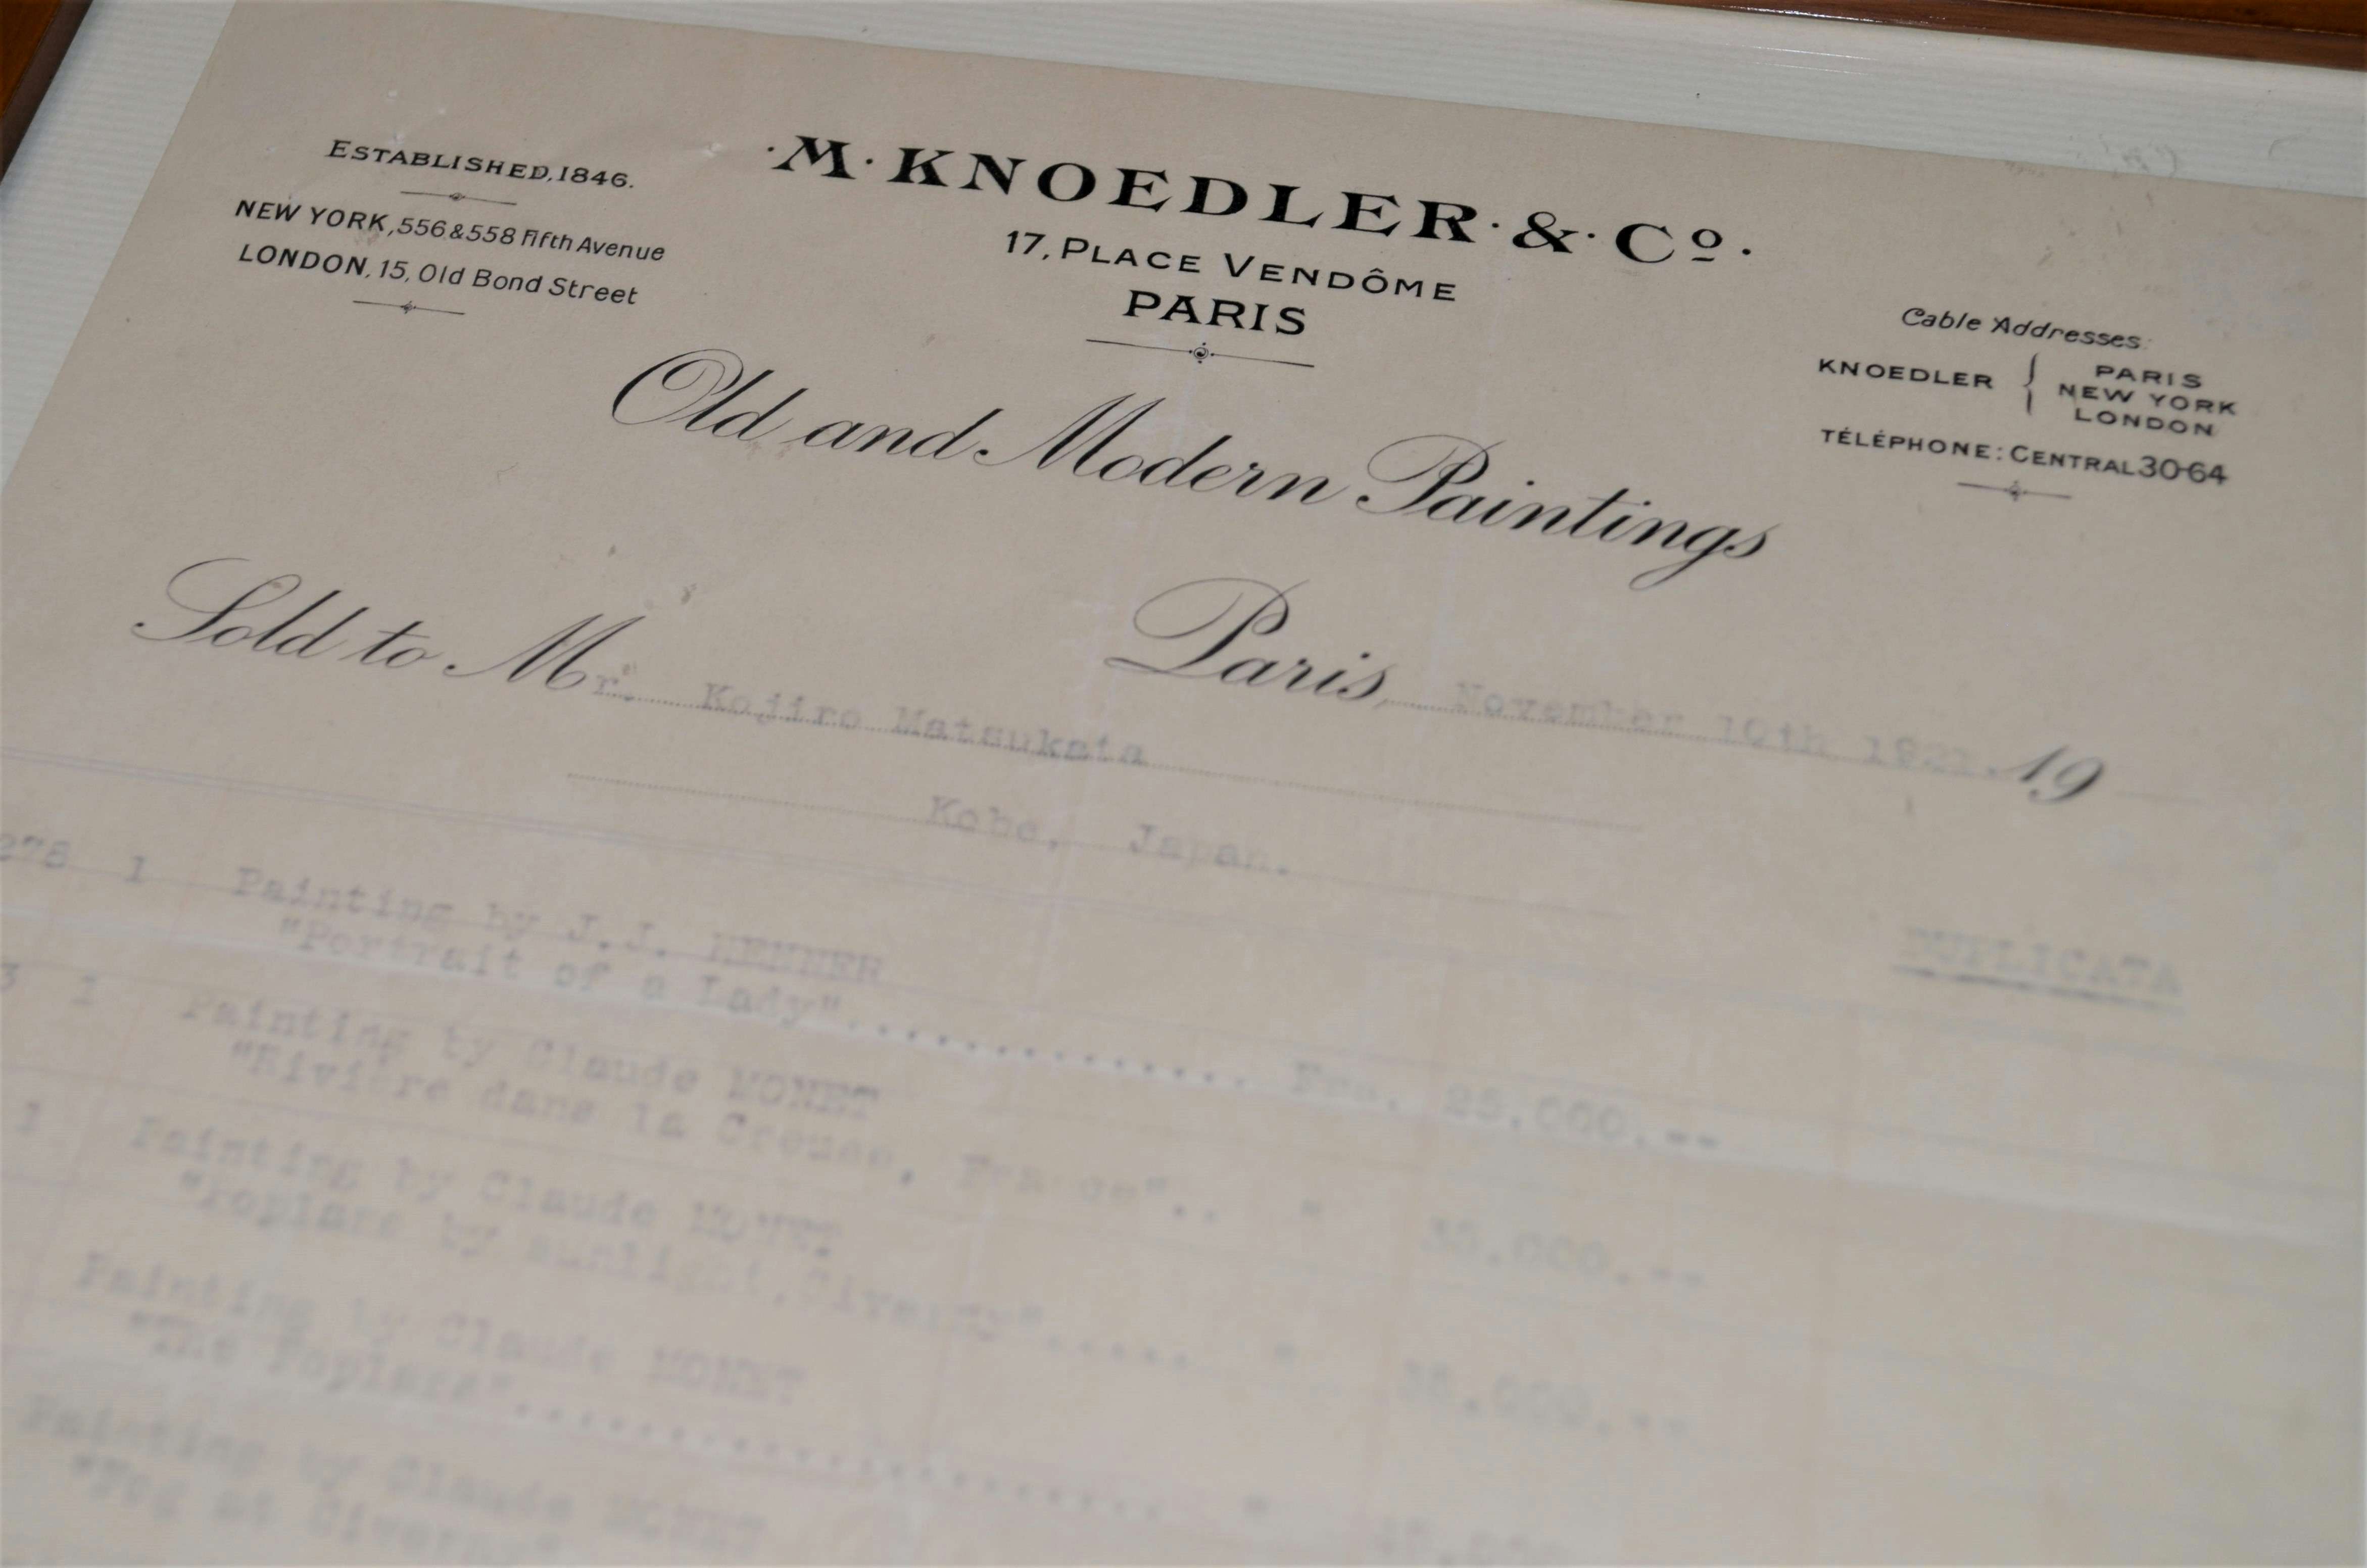 ESTABLISHED, 1846.
NEW YORK, 556 & 558 Fifth Avenue
LONDON, 15, Old Bond Street
·M·KNOEDLER·&·Cº·
17, PLACE VENDÔME
PARIS
Old and Modern Paintings
Cable Addresses:
KNOEDLER { PARIS
NEW YORK
LONDON
TÉLÉPHONE: CENTRAL 30-64
Paris, November 10th 19
Sold to Mr. Kojiro Matsukata
Kobe, Japan.
DUPLICATA
1 Painting by J.J. HENNER
"Portrait of a Lady"............. Frs. 25.000.--
1 Painting by Claude MONET
"Rivière dans la Creuse, France".. " 35.000.--
1 Painting by Claude MONET
"Poplars by sunlight, Giverny"..... " 35.000.--
Painting by Claude MONET
"The Poplars".................... "
Painting by Claude MONET
"Fog at Giverny"